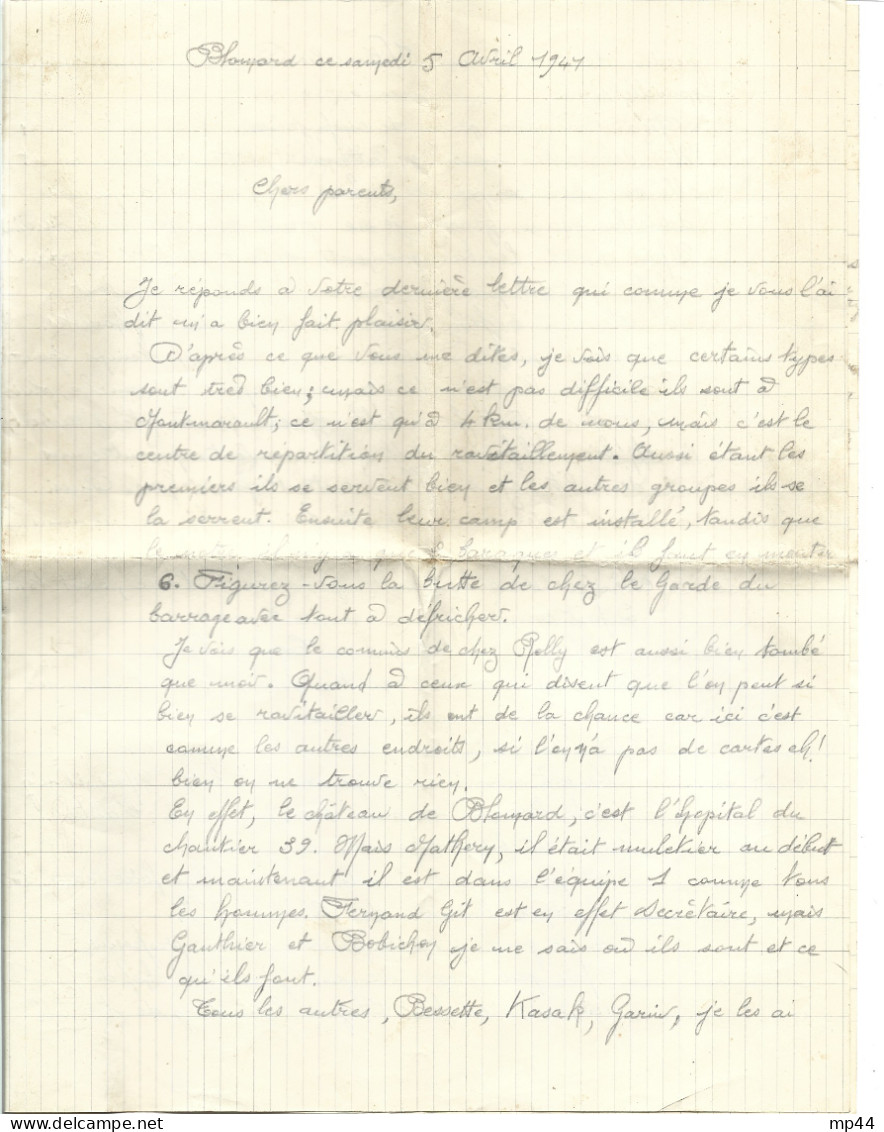 Blomard ce samedi 5 Avril 1941
Chers parents,
Je réponds à votre dernière lettre qui comme je vous l'ai
dit m'a bien fait plaisir.
D'après ce que vous me dites, je vois que certains types
sont très bien; mais ce n'est pas difficile ils sont à
Montmarault; ce n'est qu'à 4 km. de nous, mais c'est le
centre de répartition du ravitaillement. Aussi étant les
premiers ils se servent bien et les autres groupes ils se
la serrent. Ensuite leur camp est installé, tandis que
le notre il n'y a que baraques et il faut en monter
6. Figurez-vous la butte de chez le Garde du
barrage avec tout à défricher.
Je vois que le commis de chez Relly est aussi bien tombé
que moi. Quand à ceux qui disent que l'on peut si
bien se ravitailler, ils ont de la chance car ici c'est
comme les autres endroits, si l'on n'a pas de cartes eh!
bien on ne trouve rien.
En effet, le château de Blomard, c'est l'hopital du
chantier 39. Mais Mathery, il était muletier au début
et maintenant il est dans l'équipe 1 comme tous
les hommes. Fernand Git est en effet secrétaire, mais
Gauthier et Bobichon je ne sais où ils sont et ce
qu'ils font.
Tous les autres, Bessette, Kasak, Garin, je les ai
mp44